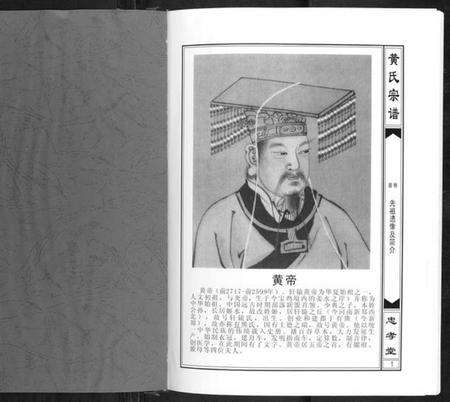 黄氏宗谱
卷首
先祖遗像及简介
忠孝堂
1
黄帝
黄帝（前2717-前2599年），轩辕黄帝为华夏始祖之一，
人文初祖，与炎帝，生于今宝鸡境内的姜水之岸）并称为
中华始祖，中国远古时期部落联盟首领。少典之子，本姓
公孙，长居姬水，故改姓姬，居轩辕之丘（今河南新郑西
北），故号轩辕氏，出生、创业和建都于有熊（今新
郑），故亦称有熊氏，因有土德之瑞，故号黄帝。他以统
一中华民族的伟绩载入史册。播百谷草木，大力发展生
产，始制衣冠，建舟车，发明指南车，定算数，制音律，
创医学，在此期间有了文字。黄帝居五帝之首，有嫘祖、
嫫母等四位夫人。